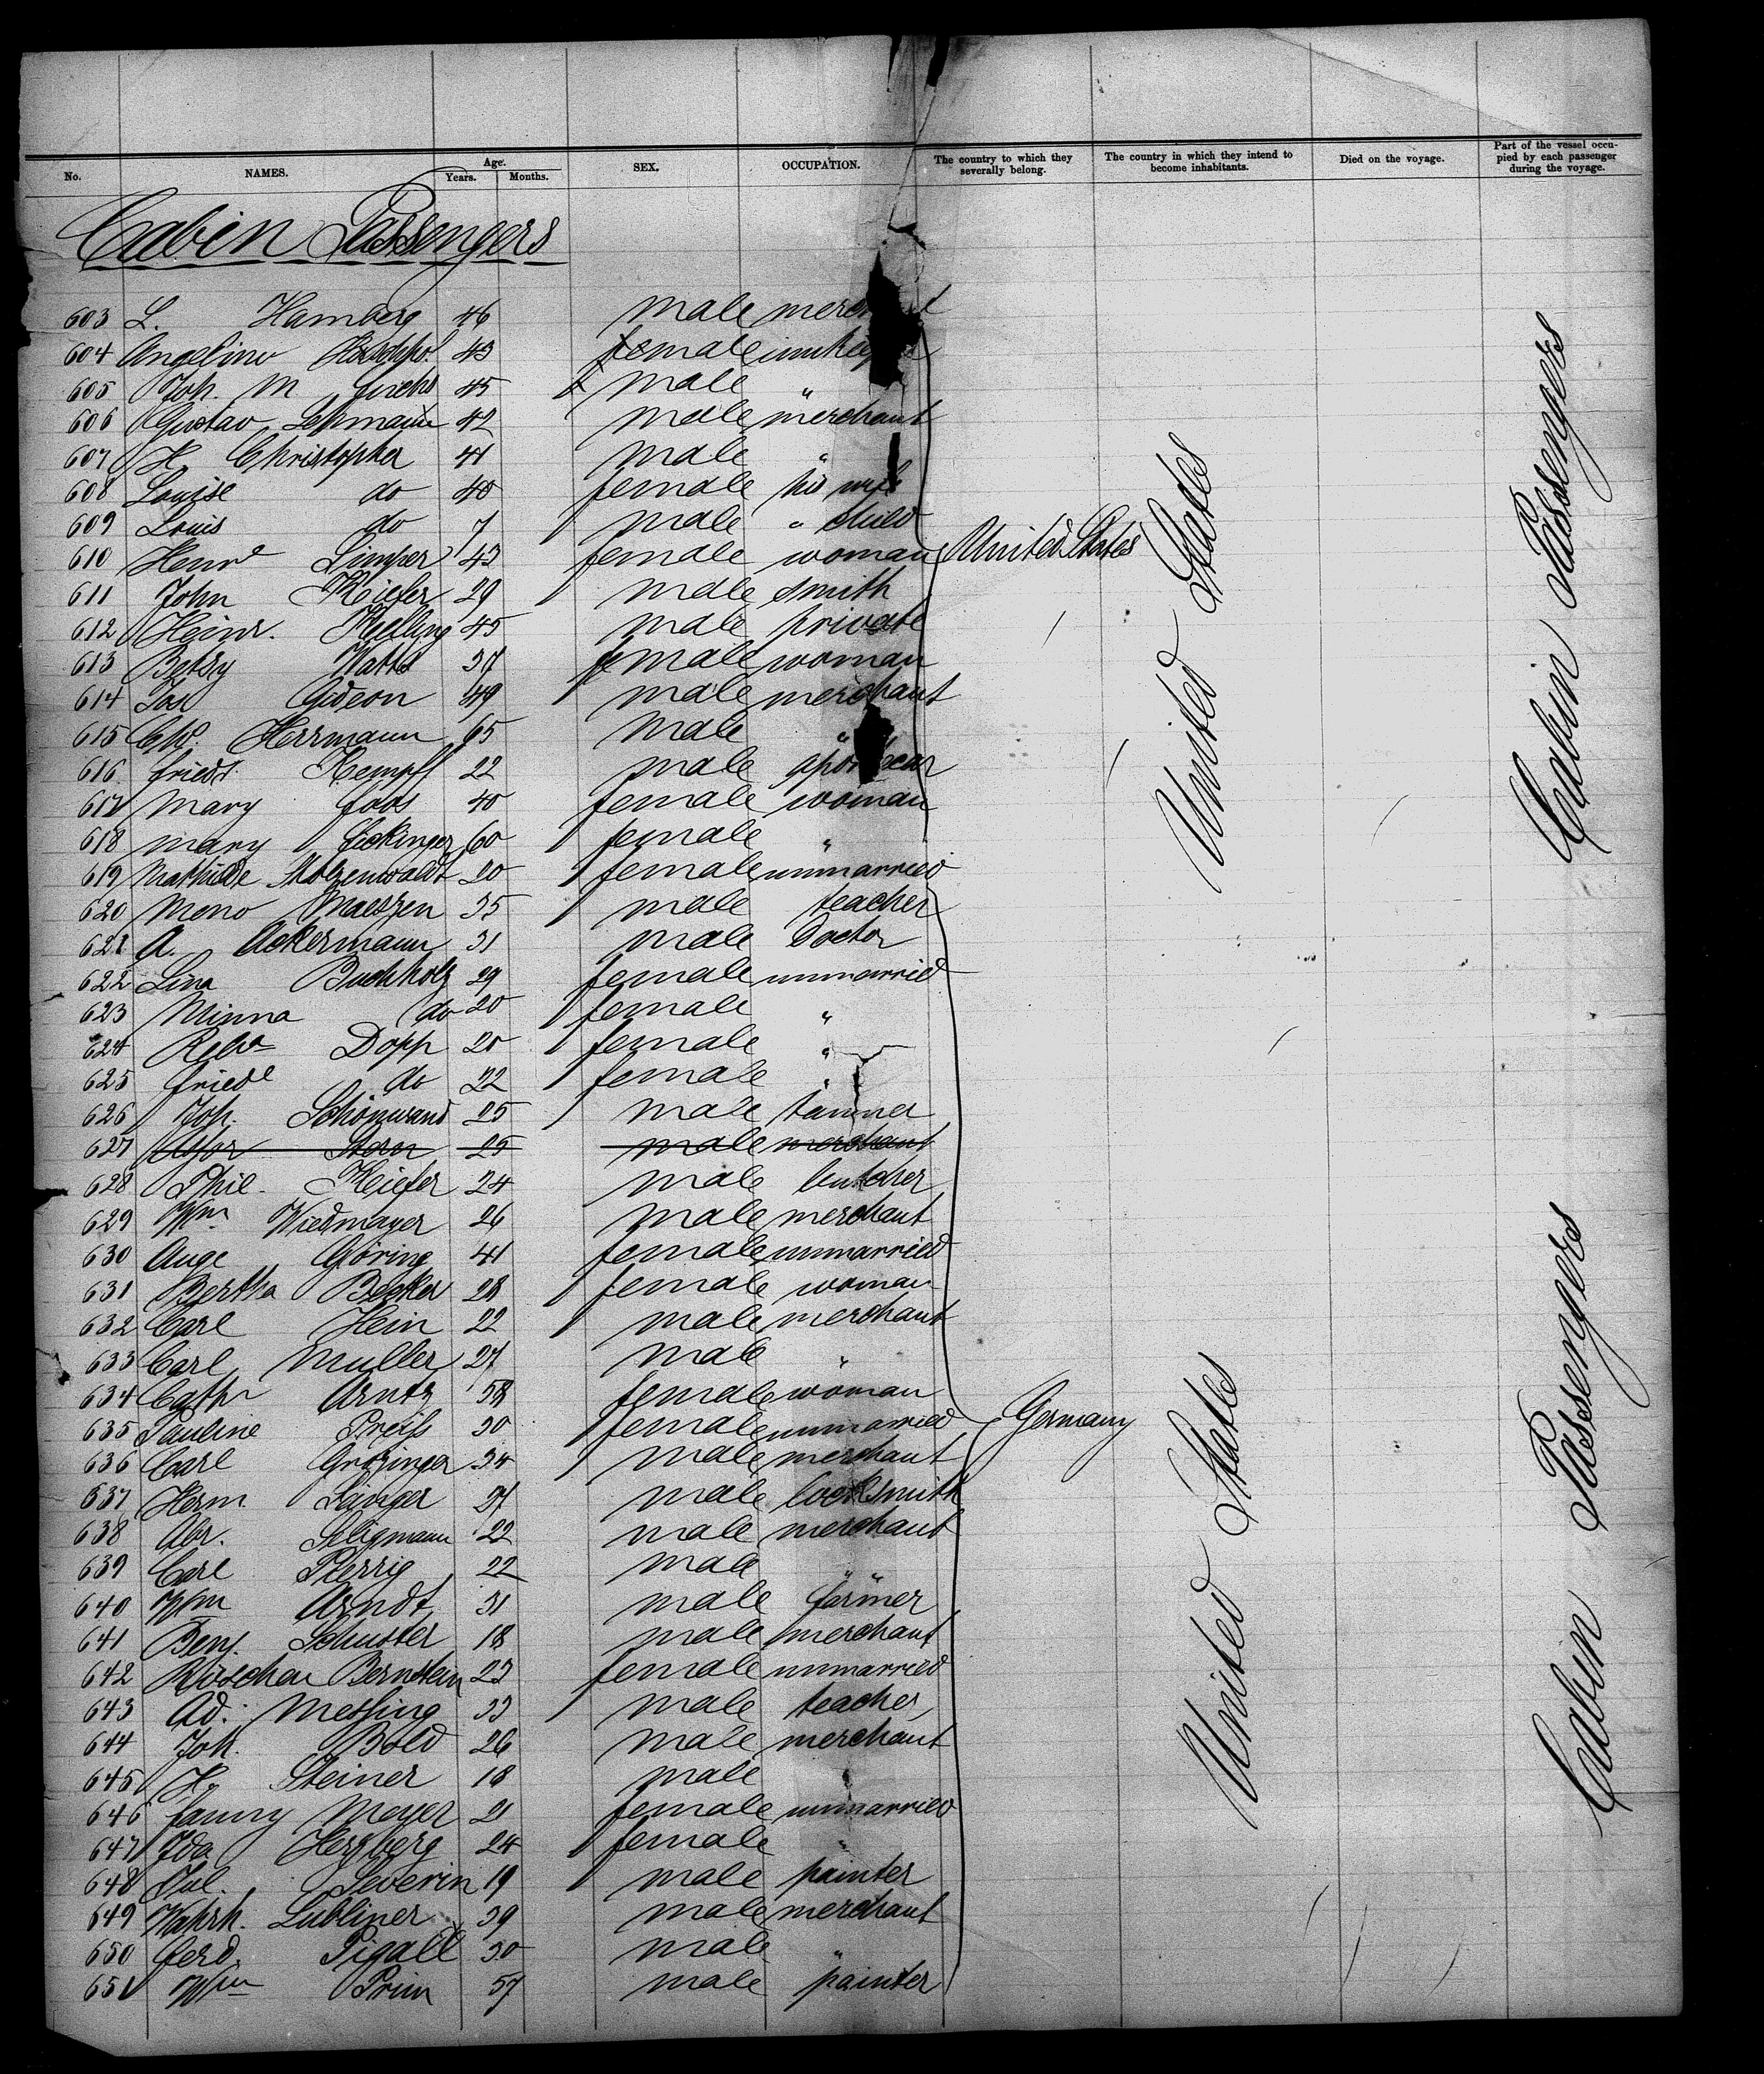 No. NAMES. Age. Years. Months. SEX. OCCUPATION. The country to which they severally belong. The country in which they intend to become inhabitants. Died on the voyage. Part of the vessel occupied by each passenger during the voyage.
Cabin Passengers
603 L. Hamberg 46 male
604 Angelino 43 female
605 Joh. M. Fuchs 45 male "
606 Gustav Lehmann 42 male merchant
607 H. Christopher 41 male "
608 Louise do 40 female his wife
609 Louis do 7 male " child
610 Henre Limper 43 female woman United States
611 John Kiefer 29 male smith
612 Heinr. Helling 45 male private
613 Betsy Watts 37 female woman
614 Jos Gideon 49 male merchant
615 Chr. Herrmann 65 male "
616 Friedr. Kempff 22 male
617 Mary Foos 40 female woman
618 Mary 60 female "
619 Mathilde Stolzenwaldt 20 female unmarried
620 Meno 35 male teacher
621 A. Ackermann 31 male Doctor
622 Lina Buchholz 29 female unmarried
623 Minna do 20 female "
624 Reba Dopp 20 female "
625 Friede do 22 female "
626 Joh. Schönwand 25 male tanner
627 Stern 25 male merchant
628 Phil. Kiefer 24 male butcher
629 Wm Wiedmayer 26 male merchant
630 Auge Göring 41 female unmarried
631 Bertha Becker 28 female woman
632 Carl Hein 22 male merchant
633 Carl Muller 27 male "
634 Cathr Arntz 58 female woman
635 Pauline Preifs 30 female unmarried Germany
636 Carl Grözinger 34 male merchant
637 Herm. Sänger 27 male locksmith
638 Abr. Seligmann 22 male merchant
639 Carl Sterrig 22 male "
640 Wm Arndt 31 male farmer
641 Benj. Schuster 18 male merchant
642 Bernstein 23 female unmarried
643 Ad. Mefsing 33 male teacher
644 Joh. Bold 26 male merchant
645 H. Steiner 18 male "
646 Fanny Meyer 21 female unmarried
647 Ida Herzberg 24 female "
648 Jul. Severin 19 male painter
649 Lubliner 39 male merchant
650 Ferd. Pigall 30 male "
651 Wm Prim 57 male painter
United States
Cabin Passengers
United States
Cabin Passengers